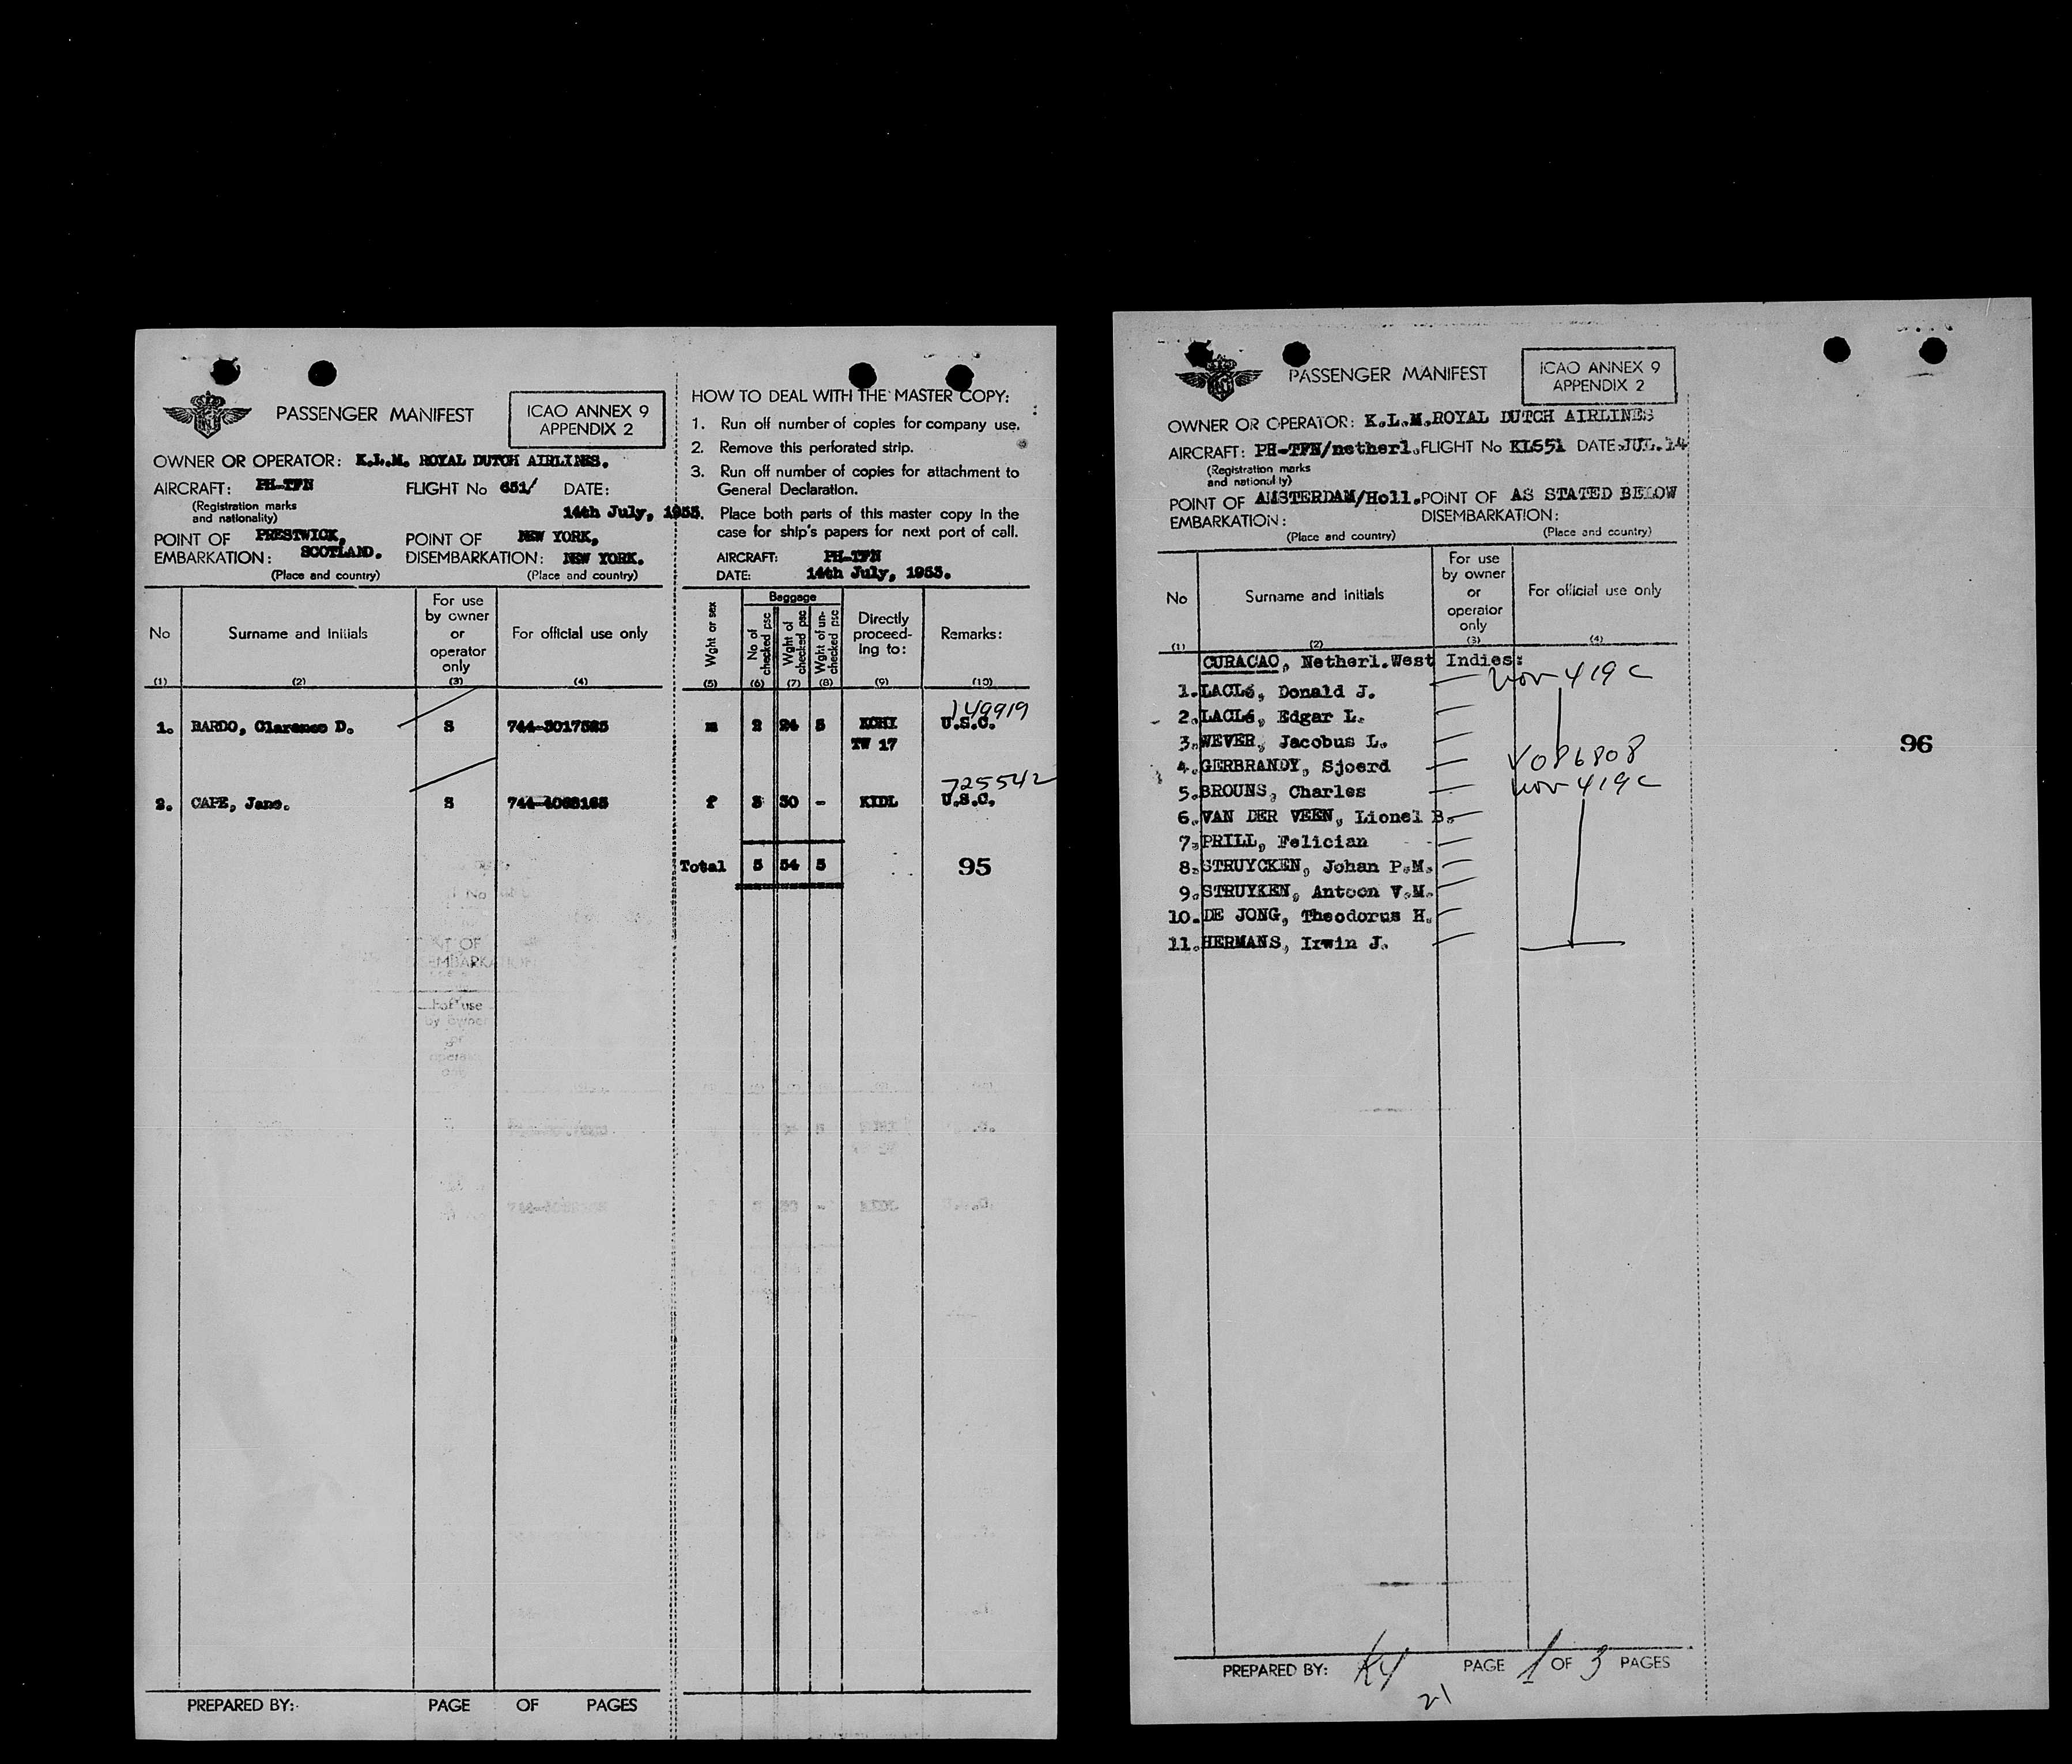 PASSENGER MANIFEST
ICAO ANNEX 9
APPENDIX 2
OWNER OR OPERATOR: K.L.M. ROYAL DUTCH AIRLINES.
AIRCRAFT: PH-TFN FLIGHT No 651/ DATE:
(Registration marks
and nationality)
14th July, 1953.
POINT OF PRESTWICK, POINT OF NEW YORK,
EMBARKATION: SCOTLAND. DISEMBARKATION: NEW YORK.
(Place and country) (Place and country)
No Surname and Initials For use by owner or operator only For official use only
(1) (2) (3) (4)
1. BARDO, Clarence D. S 744-3017525
2. CAPE, Jane. S
PREPARED BY: PAGE OF PAGES
HOW TO DEAL WITH THE MASTER COPY:
1. Run off number of copies for company use.
2. Remove this perforated strip.
3. Run off number of copies for attachment to
General Declaration.
Place both parts of this master copy in the
case for ship's papers for next port of call.
AIRCRAFT: PH-TFN
DATE: 14th July, 1953.
Wght or sex Baggage No of checked psc Wght of checked psc Wght of un-checked psc Directly proceed-ing to: Remarks:
(5) (6) (7) (8) (9) (10)
149919
m 2 24 5 U.S.C.
TW 17
725542
f 3 30 - KIDL U.S.C.
Total 5 54 5 95
PASSENGER MANIFEST
ICAO ANNEX 9
APPENDIX 2
OWNER OR OPERATOR: K.L.M.ROYAL DUTCH AIRLINES
AIRCRAFT: PH-TFN/netherl. FLIGHT No KL651 DATE:JUL.14
(Registration marks
and nationality)
POINT OF AMSTERDAM/Holl. POINT OF AS STATED BELOW
EMBARKATION: DISEMBARKATION:
(Place and country) (Place and country)
No Surname and initials For use by owner or operator only For official use only
(1) (2) (3) (4)
CURACAO, Netherl.West Indies:
1. LACLé, Donald J. 419 C
2. LACLé, Edgar L.
3. WEVER, Jacobus L.
4. GERBRANDY, Sjoerd V086808
5. BROUNS, Charles 419 C
6. VAN DER VEEN, Lionel B.
7. PRILL, Felician
8. STRUYCKEN, Johan P.M.
9. STRUYKEN, Antoon V.M.
10. DE JONG, Theodorus H.
11. HERMANS, Irwin J.
96
PREPARED BY: PAGE 1 OF 3 PAGES
21